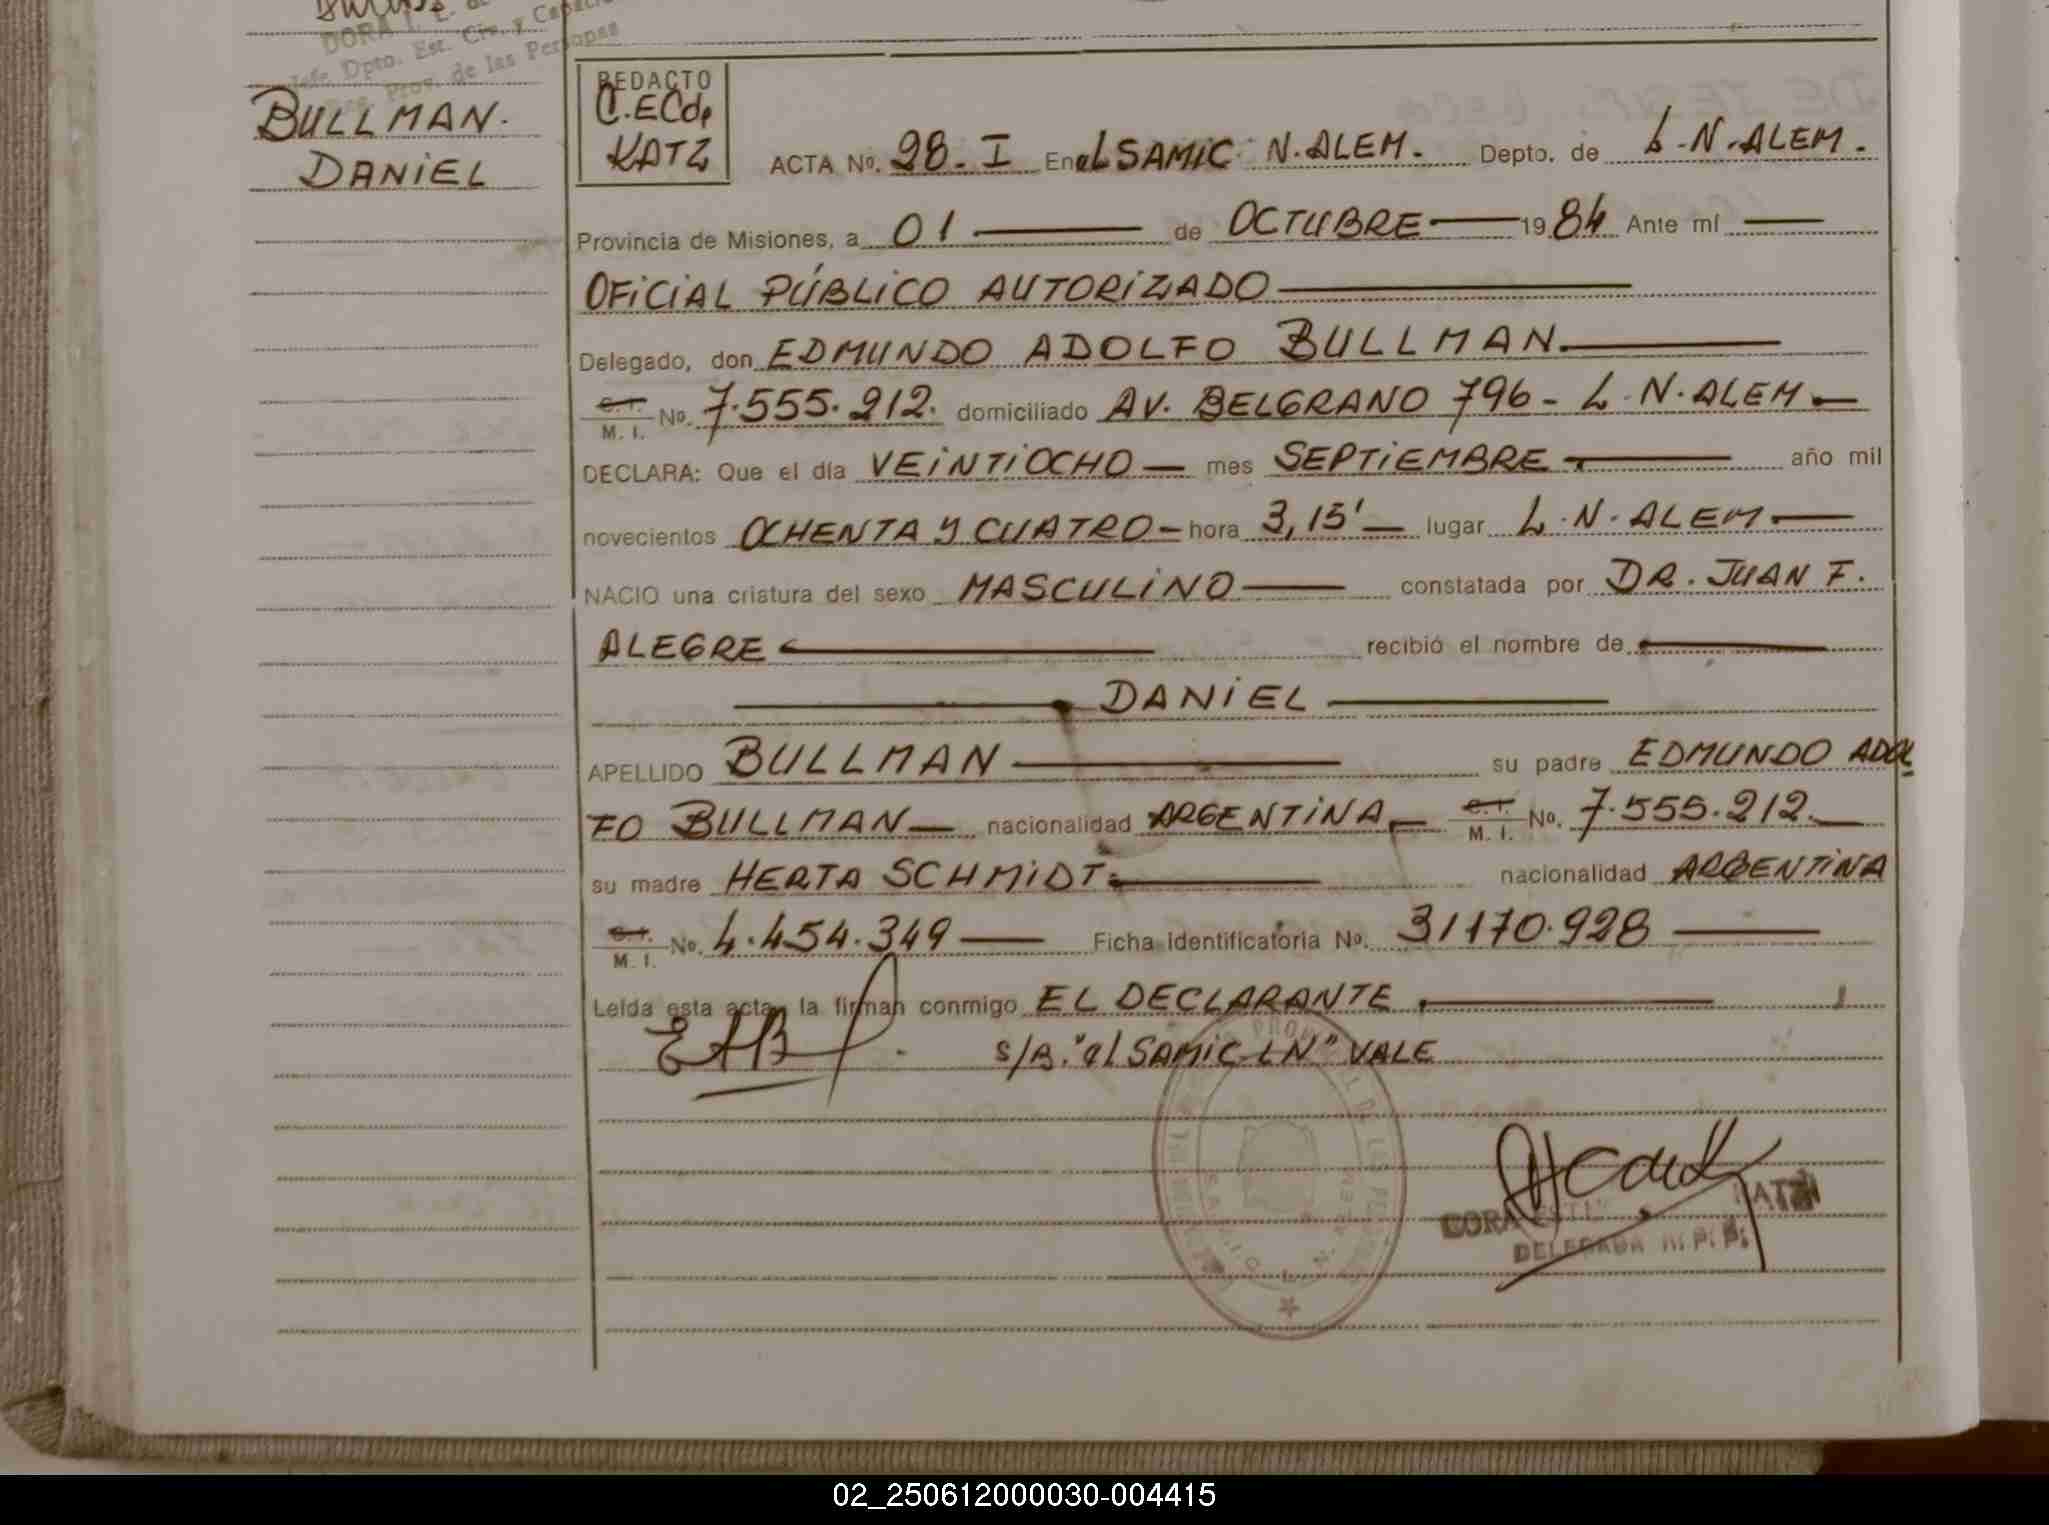 DORA
Jefe Dpto. Est. Civ. y Capacid
Reg. Prov. de las Personas
BULLMAN.
DANIEL
REDACTO
C.ECdp
KATZ
ACTA No. 28. I En el SAMIC N. ALEM. Depto. de L. N. ALEM.
Provincia de Misiones, a 01 de OCTUBRE 1984 Ante mí
OFICIAL PÚBLICO AUTORIZADO
Delegado, don EDMUNDO ADOLFO BULLMAN.
C. I. M. I. No. 7.555.212. domiciliado AV. BELGRANO 796 - L. N. ALEM.
DECLARA: Que el día VEINTIOCHO mes SEPTIEMBRE año mil
novecientos OCHENTA Y CUATRO hora 3,15' lugar L. N. ALEM
NACIO una criatura del sexo MASCULINO constatada por DR. JUAN F.
ALEGRE recibió el nombre de
DANIEL
APELLIDO BULLMAN su padre EDMUNDO ADOL
FO BULLMAN nacionalidad ARGENTINA C. I. M. I. No. 7.555.212.
su madre HERTA SCHMIDT. nacionalidad ARGENTINA
C. I. M. I. No. 4.454.349 Ficha identificatoria No. 31170.928
Leída esta acta, la firman conmigo EL DECLARANTE.
EAB
s/B. "el SAMIC LN" VALE
CORA KATZ
DELEGADA R. P. P.
02_250612000030-004415